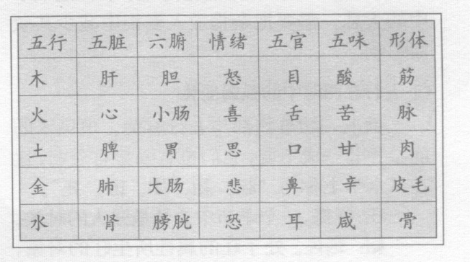 五行 五脏 六腑 情绪 五官 五味 形体
木 肝 胆 怒 目 酸 筋
火 心 小肠 喜 舌 苦 脉
土 脾 胃 思 口 甘 肉
金 肺 大肠 悲 鼻 辛 皮毛
水 肾 膀胱 恐 耳 咸 骨